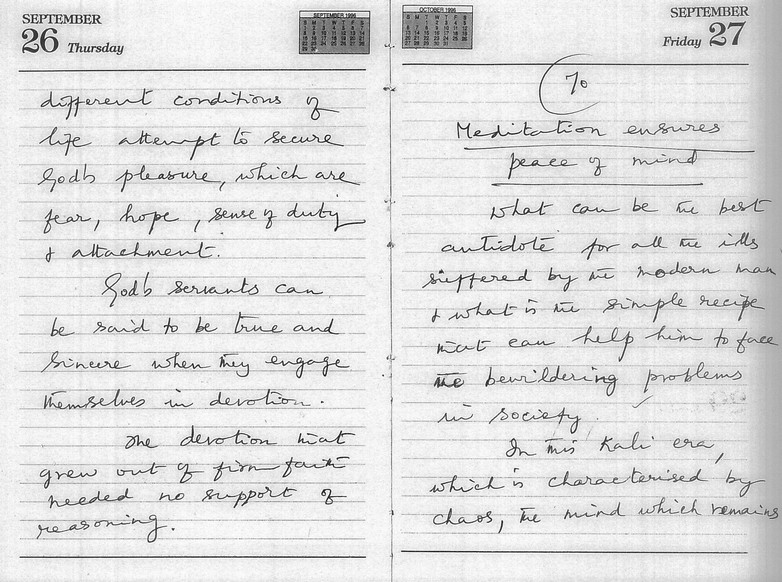 SEPTEMBER
26 Thursday
SEPTEMBER 1996
different conditions of
life attempt to secure
God's pleasure, which are
fear, hope, sense of duty
& attachment.
God's servants can
be said to be true and
sincere when they engage
themselves in devotion.
The devotion that
grew out of firm faith
needed no support of
reasoning.
OCTOBER 1996
SEPTEMBER
Friday 27
70
Meditation ensures
peace of mind
What can be the best
antidote for all the ills
suffered by the modern man
& what is the simple recipe
that can help him to face
the bewildering problems
in society.
In this Kali era,
which is characterised by
chaos, the mind which remains